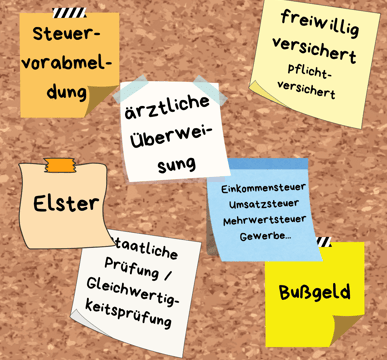 Steuer-
vorabmel-
dung
freiwillig
versichert
pflicht-
versichert
ärztliche
Überwei-
sung
Einkommensteuer
Umsatzsteuer
Mehrwertsteuer
Gewerbe...
Elster
staatliche
Prüfung /
Gleichwertig-
keitsprüfung
Bußgeld